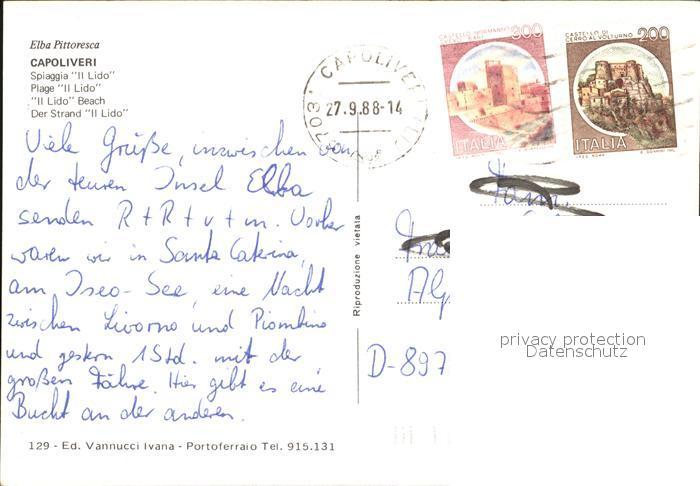 Elba Pittoresca
CAPOLIVERI
Spiaggia "Il Lido"
Plage "Il Lido"
"Il Lido" Beach
Der Strand "Il Lido"
Viele Grüße, inzwischen von
der teuren Insel Elba
senden R + R + v + m. Vorher
waren wir in Santa Caterina,
am Iseo-See, eine Nacht
zwischen Livorno und Piombino
und gestern 1 Std. mit der
großen Fähre. Hier gibt es eine
Bucht an der anderen.
129 - Ed. Vannucci Ivana - Portoferraio Tel. 915.131
Riproduzione vietata
CAPOLIVERI
27.9.88-14
CASTELLO NORMANNO
300
ITALIA
CASTELLO DI
CERRO AL VOLTURNO
200
ITALIA
Fam.
D-897
privacy protection
Datenschutz